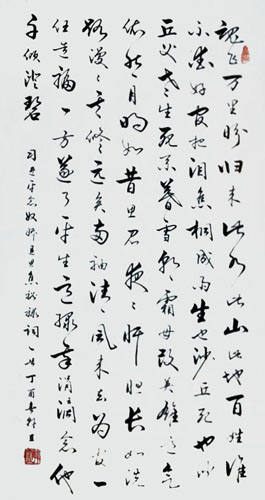 魂飞万里盼归来此水此山此地百姓谁
不爱好官把泪焦桐成雨生也沙丘死也沙
丘父老生死系暮雪朝霜毋改英雄意气
依然月明如昔思君夜夜肝胆长如洗
路漫漫其修远矣两袖清风来去为官一
任造福一方遂了平生意绿我涓滴会他
千顷澄碧 习近平念奴娇追思焦裕禄词一首丁酉春